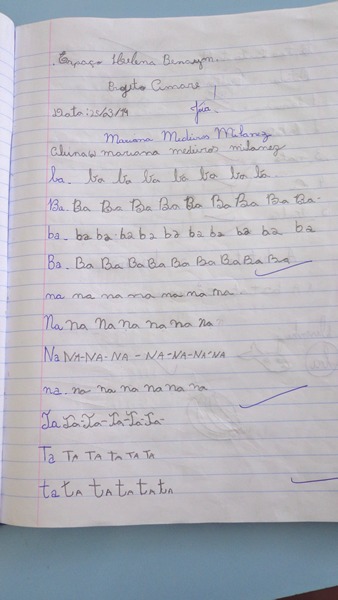 Espaço Helena Benayon.
Projeto Cimaré
Data: 25/03/19
Joia!
Mariana Medeiros Milanez
Aluna mariana medeiros milanez
ba. ba ba ba ba ba ba ba
Ba. Ba Ba Ba Ba Ba Ba Ba Ba Ba.
ba. ba ba. ba ba ba ba ba ba ba ba
Ba. Ba Ba Ba Ba Ba Ba Ba Ba Ba
na na na na na na na
Na na Na na na na na
Na NA-NA- NA - NA-NA-NA-NA
na. na na na na na na
Ta Ta-Ta- Ta-Ta-Ta-
Ta TA TA TA TA TA
ta tA tA ta tA tA